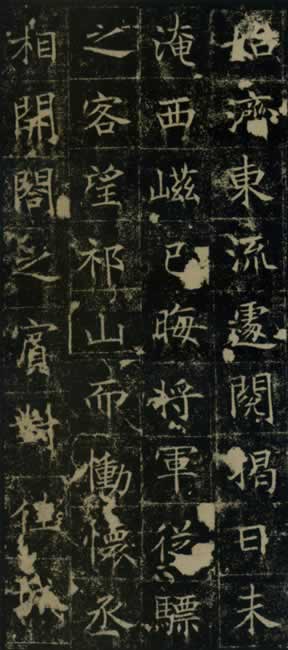 濟東流遽閱揭日未
淹西嵫已晦將軍從驃
之客望祁山而慟懷丞
相開閣之賓對佳城